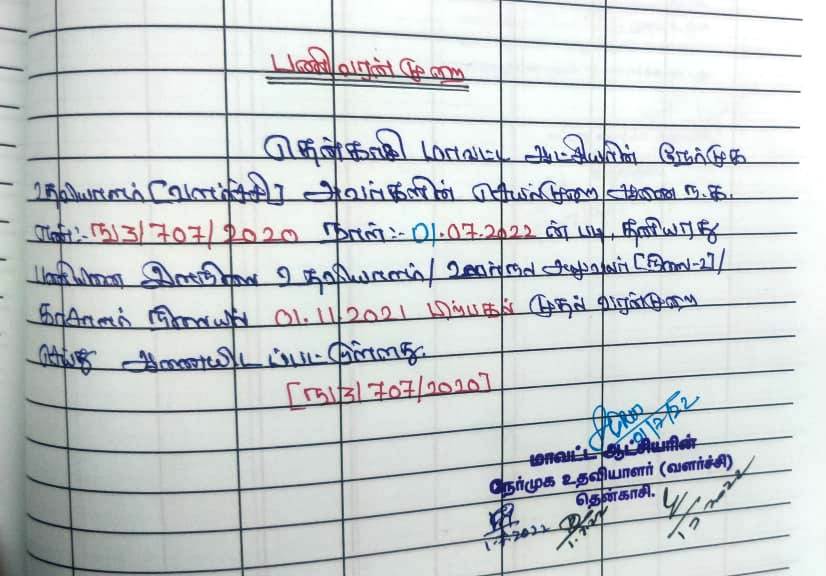 பணி வரன்முறை
தென்காசி மாவட்ட ஆட்சியரின் நேர்முக
உதவியாளர் [வளர்ச்சி] அவர்களின் செயல்முறை ஆணை ந.க.
எண்:- ந3/707/2020 நாள்:- 01.07.2022 ன் படி, தனியரது
பணியினை இளநிலை உதவியாளர்/ ஊர்நல அலுவலர் [நிலை-2]/
காசாளர் நிலையில் 01.11.2021 பிற்பகல் முதல் வரன்முறை
செய்து ஆணையிடப்பட்டுள்ளது.
[ந3/707/2020]
மாவட்ட ஆட்சியரின்
நேர்முக உதவியாளர் (வளர்ச்சி)
தென்காசி.
1.7.2022